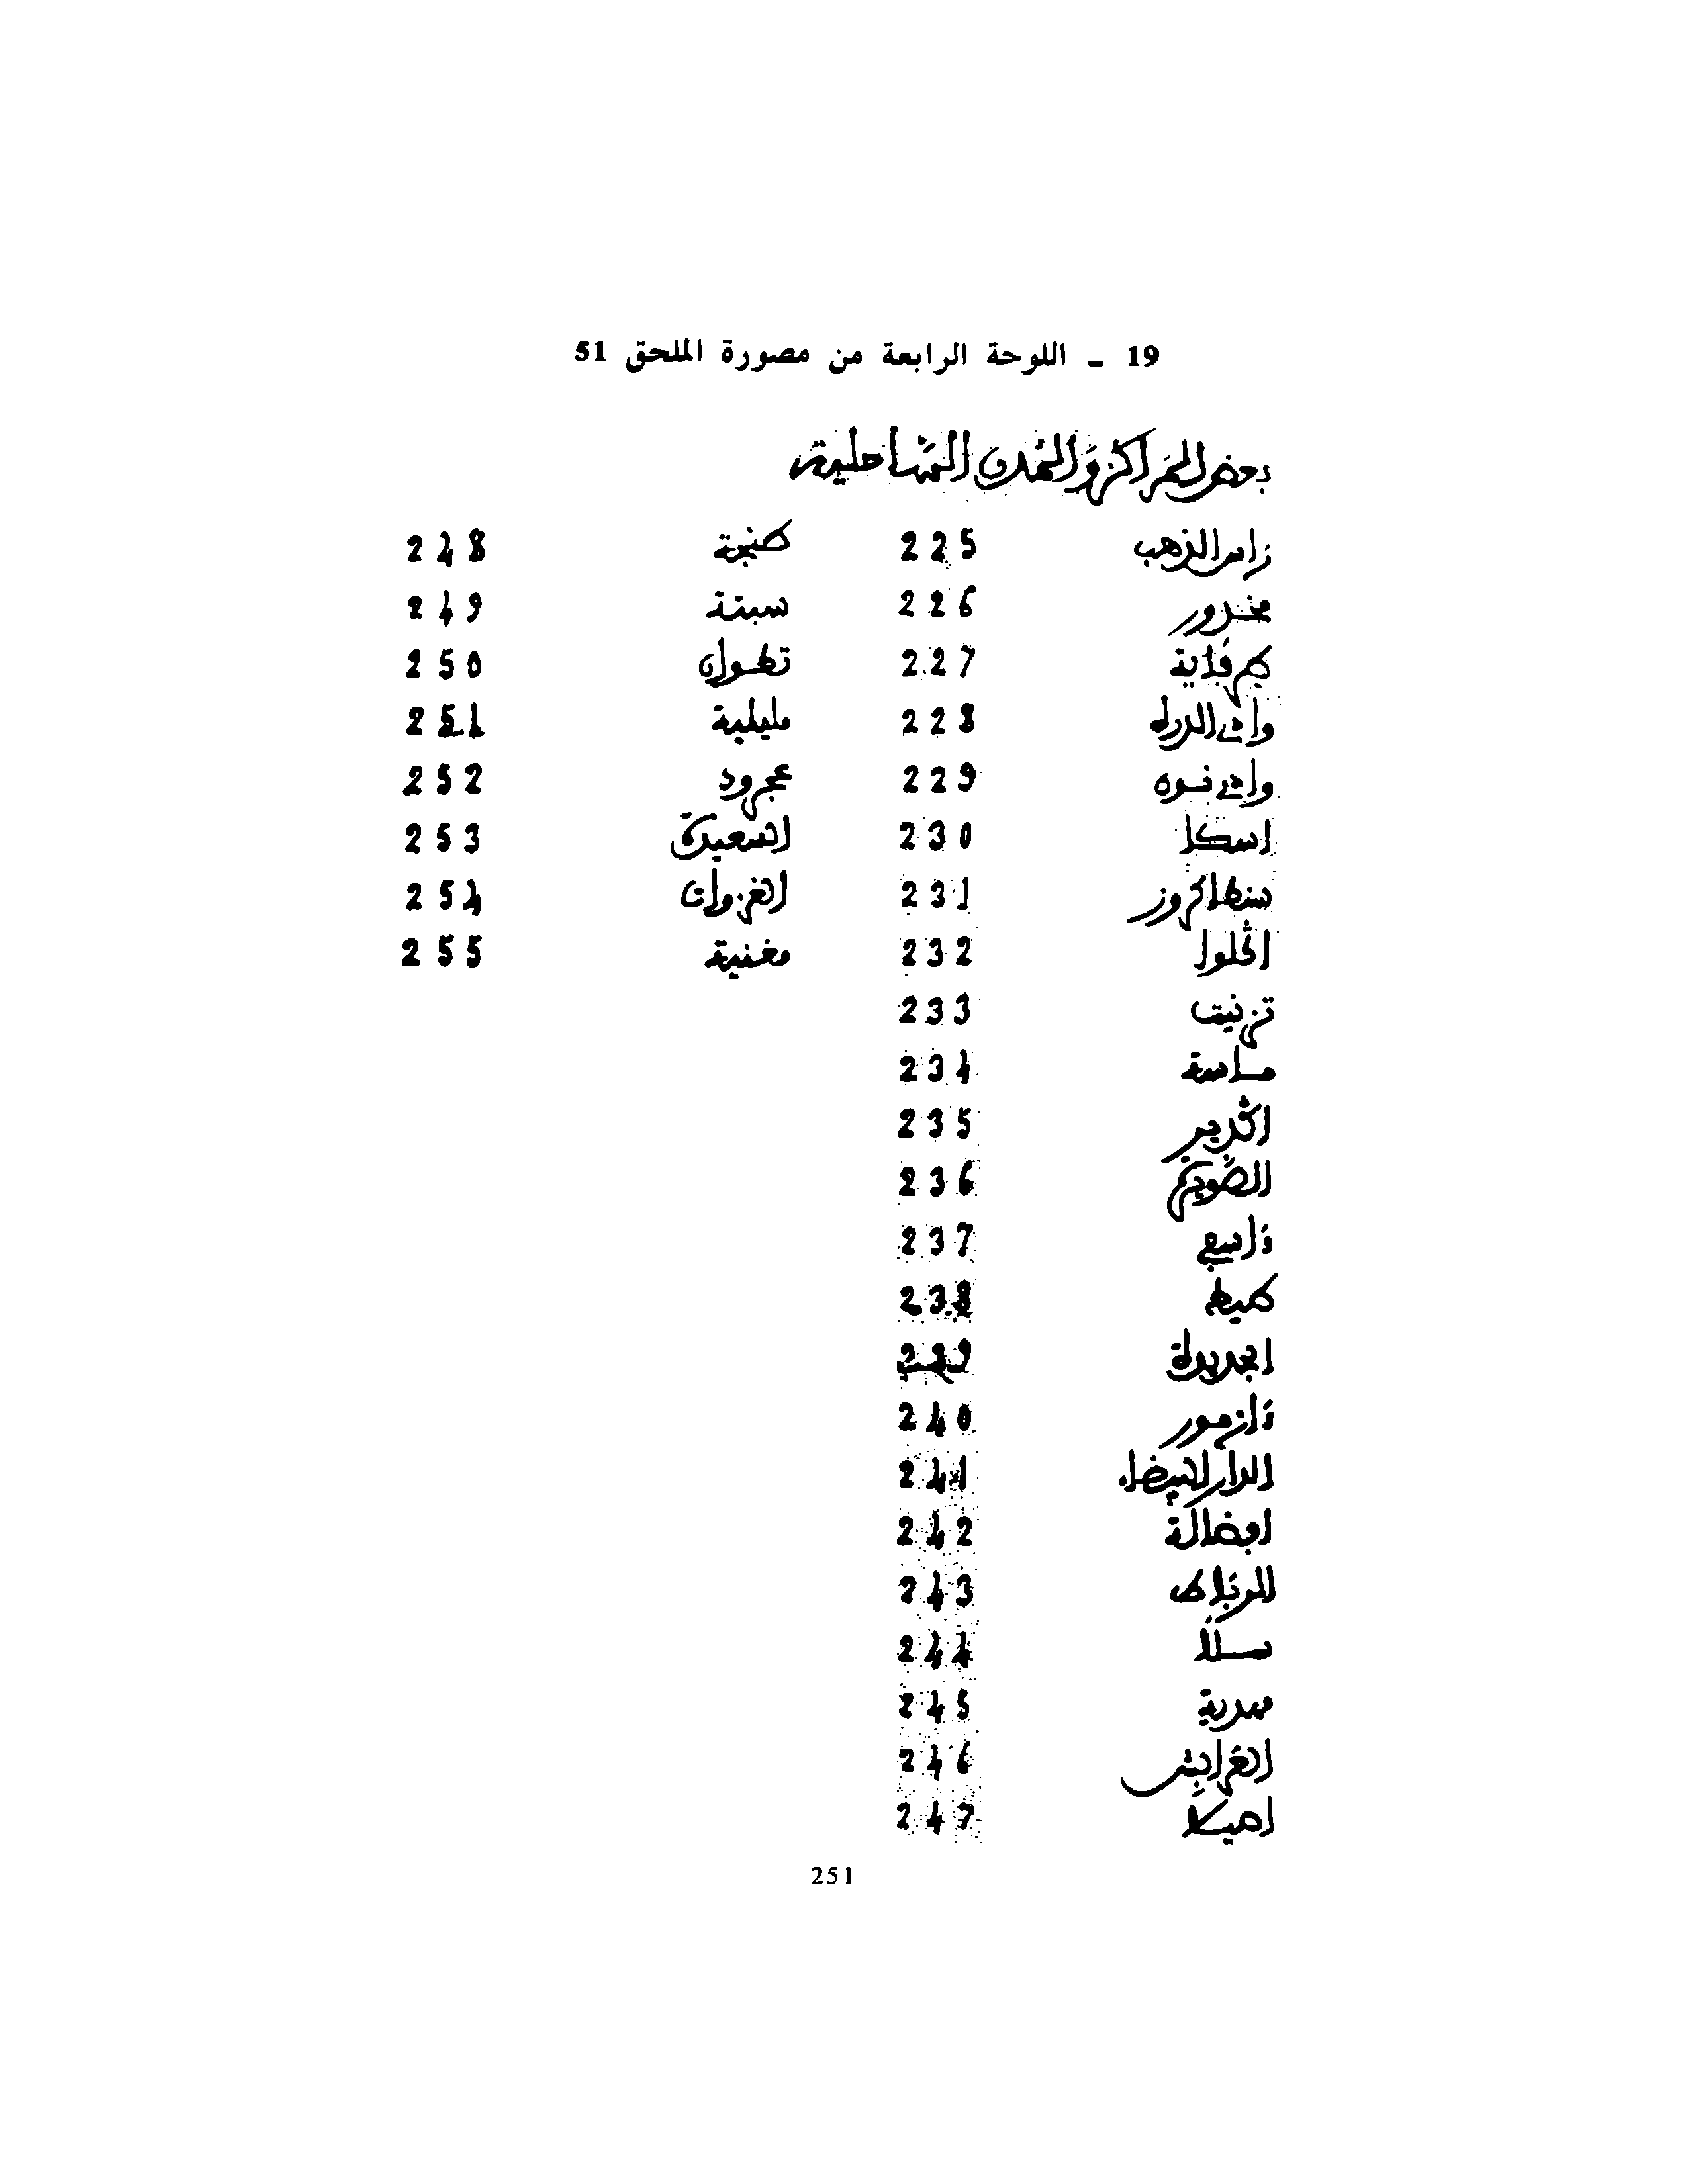 19 ـ اللوحة الرابعة من مصورة الملحق 51
بعض المراكز والمدن الساحلية
راس الذهب 225 طنجة 248
بخدور 226 سبتة 249
طرفاية 227 تطوان 250
وادي الدرعة 228 مليلية 251
وادي نوه 229 عجرود 252
اسكا 230 السعيدة 253
سنطاكروز 231 الغزوات 254
اڭلوا 232 مغنية 255
تزنيت 233
ماسة 234
اڭدير 235
الصويرة 236
ءاسفي 237
طيط 238
الجديدة 239
ءازمور 240
الدار البيضاء 241
افضالة 242
الرباط 243
سلا 244
مهدية 245
العرايش 246
اصيلا 247
251